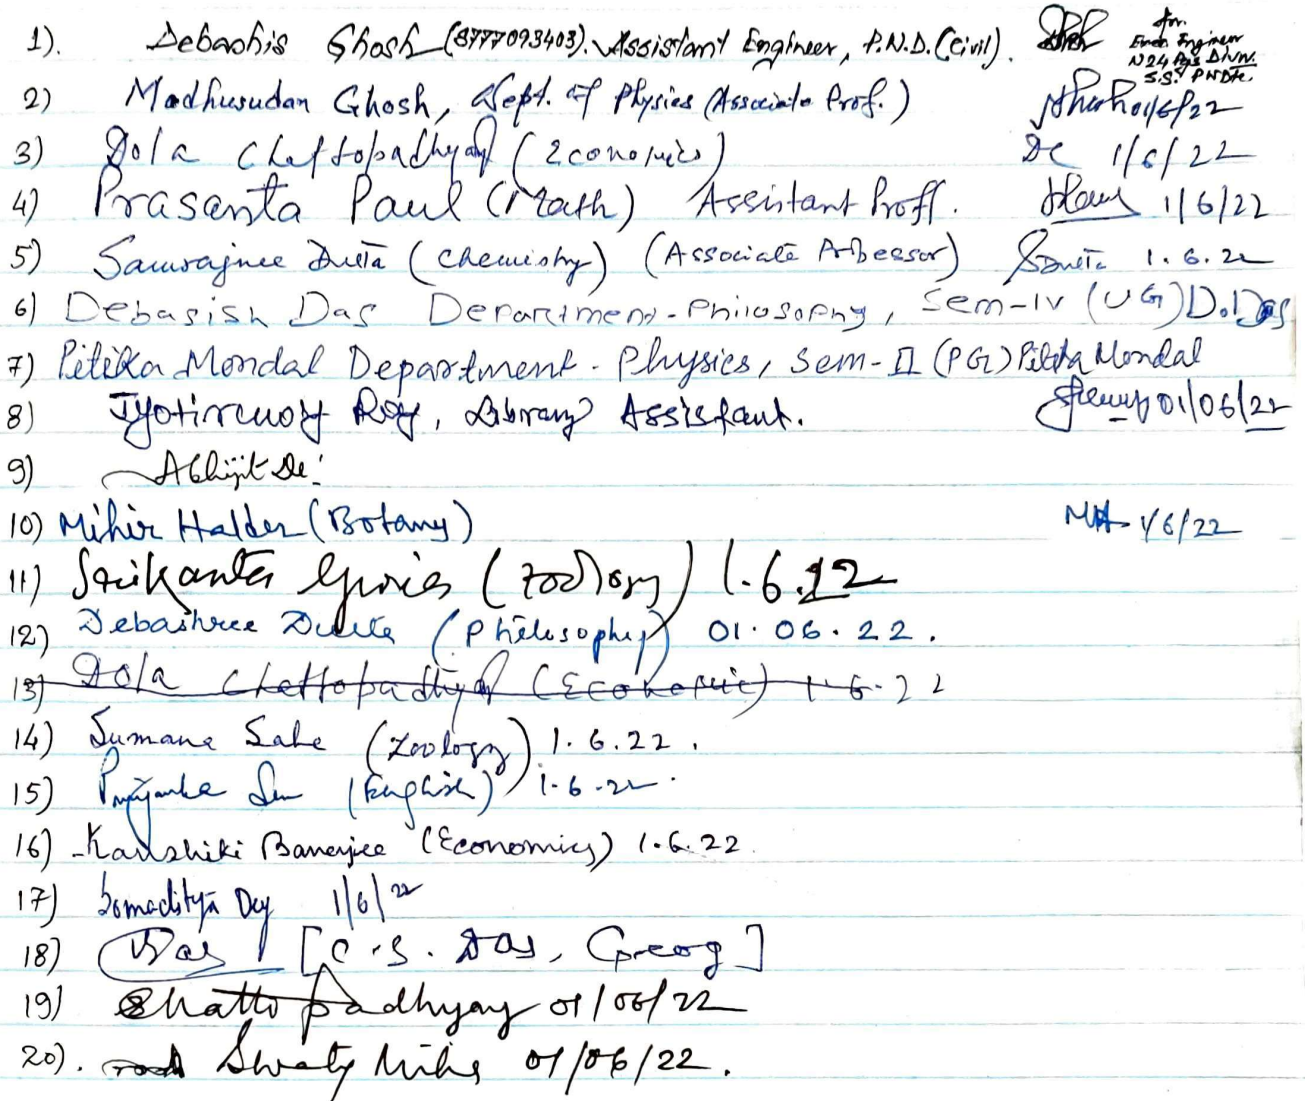 1). Debashis Ghosh (8777093403). Assistant Engineer, P.W.D. (Civil). for
N24 Pgs Divn.
2) Madhusudan Ghosh, Dept. of Physics (Associate Prof.) 01/6/22
3) Dola Chattopadhyay (Economics) DC 1/6/22
4) Prasanta Paul (Math) Assistant Proff. 1/6/22
5) Samrajnee Dutta (Chemistry) (Associate Professor) SDutta 1.6.22
6) Debasish Das Department - Philosophy, Sem-IV (UG) D.Das
7) Pitika Mondal Department - Physics, Sem-II (PG) Pitika Mondal
8) Jyotirmoy Roy, Library Assistant. 01/06/22
9) Abhijit De
10) Mihir Halder (Botany) MH 1/6/22
11) Srikanta (Zoology) 1.6.22
12) Debashree Dutta (Philosophy) 01.06.22.
13) Dola Chattopadhyay (Economic) 1.6.22
14) Sumana Saha (Zoology) 1.6.22.
15) Priyanka Sen (English) 1-6-22.
16) Kaushiki Banerjee (Economics) 1.6.22.
17) Somaditya Dey 1/6/22
18) Das [C.S. Das, Geog]
19) Chattopadhyay 01/06/22
20). 01/06/22.